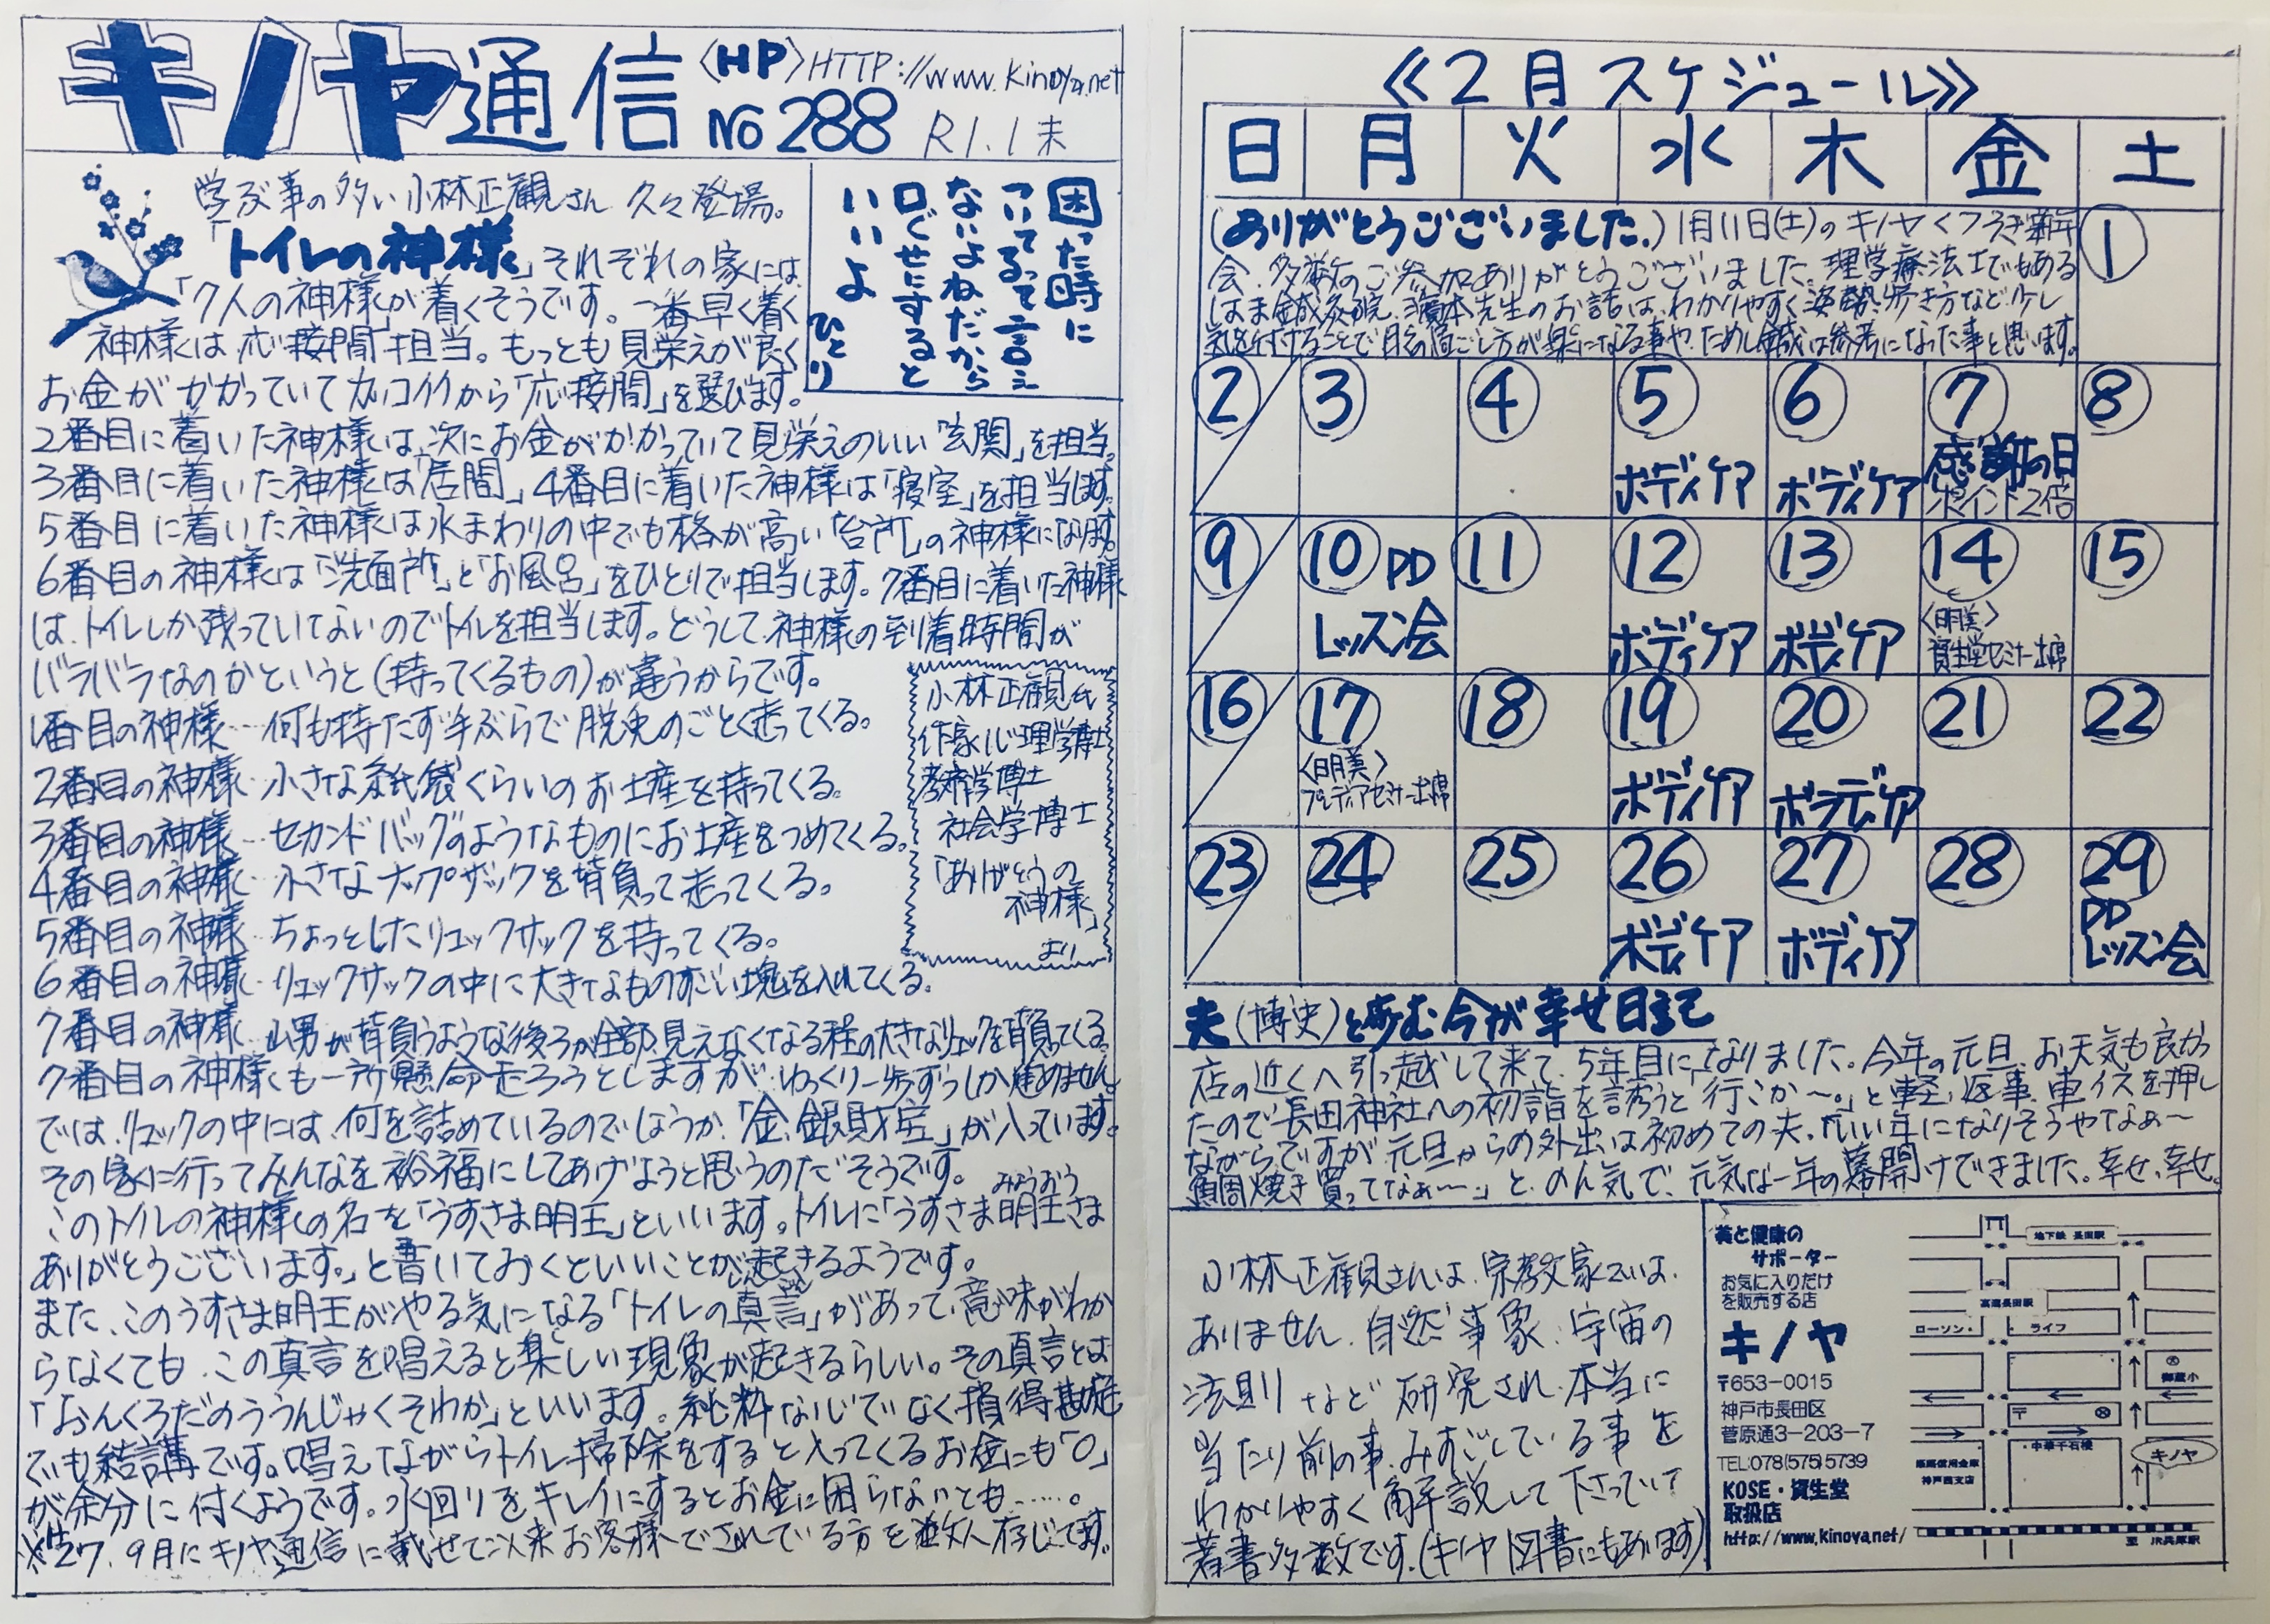 キノヤ通信
〈HP〉HTTP://www.kinoya.net
No 288 R1.1末
学ぶ事の多い小林正観さん 久々登場。
困った時に
ついてるって言え
ないよねだから
口ぐせにすると
いいよ
ひとり
「トイレの神様」それぞれの家には
「7人の神様」が着くそうです。一番早く着く
神様は、応接間担当。もっとも見栄えが良く
お金がかかっていてカッコイイから「応接間」を選びます。
2番目に着いた神様は、次にお金がかかっていて見栄えのいい「玄関」を担当。
3番目に着いた神様は「居間」4番目に着いた神様は「寝室」を担当します。
5番目に着いた神様は水まわりの中でも格が高い「台所」の神様になります。
6番目の神様は「洗面所」と「お風呂」をひとりで担当します。7番目に着いた神様
は、トイレしか残っていないのでトイレを担当します。どうして、神様の到着時間が
バラバラなのかというと(持ってくるもの)が違うからです。
1番目の神様…何も持たず手ぶらで脱兎のごとく走ってくる。
2番目の神様…小さな紙袋くらいのお土産を持ってくる。
3番目の神様…セカンドバッグのようなものにお土産をつめてくる。
4番目の神様…小さなナップザックを背負って走ってくる。
5番目の神様…ちょっとしたリュックサックを持ってくる。
6番目の神様…リュックサックの中に大きなものすごい塊を入れてくる。
7番目の神様…山男が背負うような後ろが全部見えなくなる程の大きなリュックを背負ってくる。
小林正観氏
作家 心理学博士
教育学博士
社会学博士
「ありがとうの
神様」
より
7番目の神様も一所懸命走ろうとしますが、ゆっくり一歩ずつしか進めません。
では、リュックの中には、何を詰めているのでしょうか、「金、銀、財宝」が入っています。
その家に行ってみんなを裕福にしてあげようと思うのだそうです。
このトイレの神様の名を「うすさま明王」といいます。トイレに「うすさま明王さま
みょうおう
ありがとうございます。」と書いておくといいことが起きるようです。
また、このうすさま明王がやる気になる「トイレの真言」があって、意味がわか
しんごん
らなくても、この真言を唱えると楽しい現象が起きるらしい。その真言とは
「おんくろだのううんじゃくそわか」といいます。純粋な心でなく損得勘定
でも結講です。唱えながらトイレ掃除をすると入ってくるお金にも「0」
が余分に付くようです。水回りをキレイにするとお金に困らないとも……。
※H27.9月にキノヤ通信に載せて以来お客様でされている方を数人存じてます。
《2月スケジュール》
日 月 火 水 木 金 土
(ありがとうございました。)1月11日(土)のキノヤくつろぎ新年
会、多数のご参加ありがとうございました。理学療法士でもある
はま鍼灸院、濱本先生のお話は、わかりやすく姿勢、歩き方など少し
気を付けることで日々の過ごし方が楽になる事や、ためし鍼は参考になった事と思います。
1
2 3 4 5 6 7 8
ボディケア ボディケア 感謝の日
ポイント2倍
9 10 PD 11 12 13 14 15
レッスン会 ボディケア ボディケア 〈明美〉
資生堂セミナー出席
16 17 18 19 20 21 22
〈明美〉
プレディアセミナー出席 ボディケア ボディケア
23 24 25 26 27 28 29
ボディケア ボディケア PD
レッスン会
夫(博史)と歩む今が幸せ日記
店の近くへ引っ越しして来て、5年目になりました。今年の元旦、お天気も良かっ
たので長田神社への初詣を誘うと「行こか〜。」と軽い返事。車イスを押し
ながらですが、元旦からの外出は初めての夫。「いい年になりそうやなぁ〜
鯛焼き買ってなぁ〜。」と、のん気で、元気な一年の幕開けできました。幸せ、幸せ。
小林正観さんは、宗教家では、
ありません。自然事象、宇宙の
法則 など研究され、本当に
当たり前の事、みすごしている事を
わかりやすく解説して下さっていて
著書多数です。(キノヤ図書にもあります)
美と健康の
サポーター
お気に入りだけ
を販売する店
キノヤ
〒653-0015
神戸市長田区
菅原通3-203-7
TEL:078(575)5739
KOSE・資生堂
取扱店
http://www.kinoya.net/
地下鉄 長田駅
高速長田駅
ローソン・
ライフ
御蔵小
〒
・中華千石楼
キノヤ
神戸西支店
至 JR兵庫駅